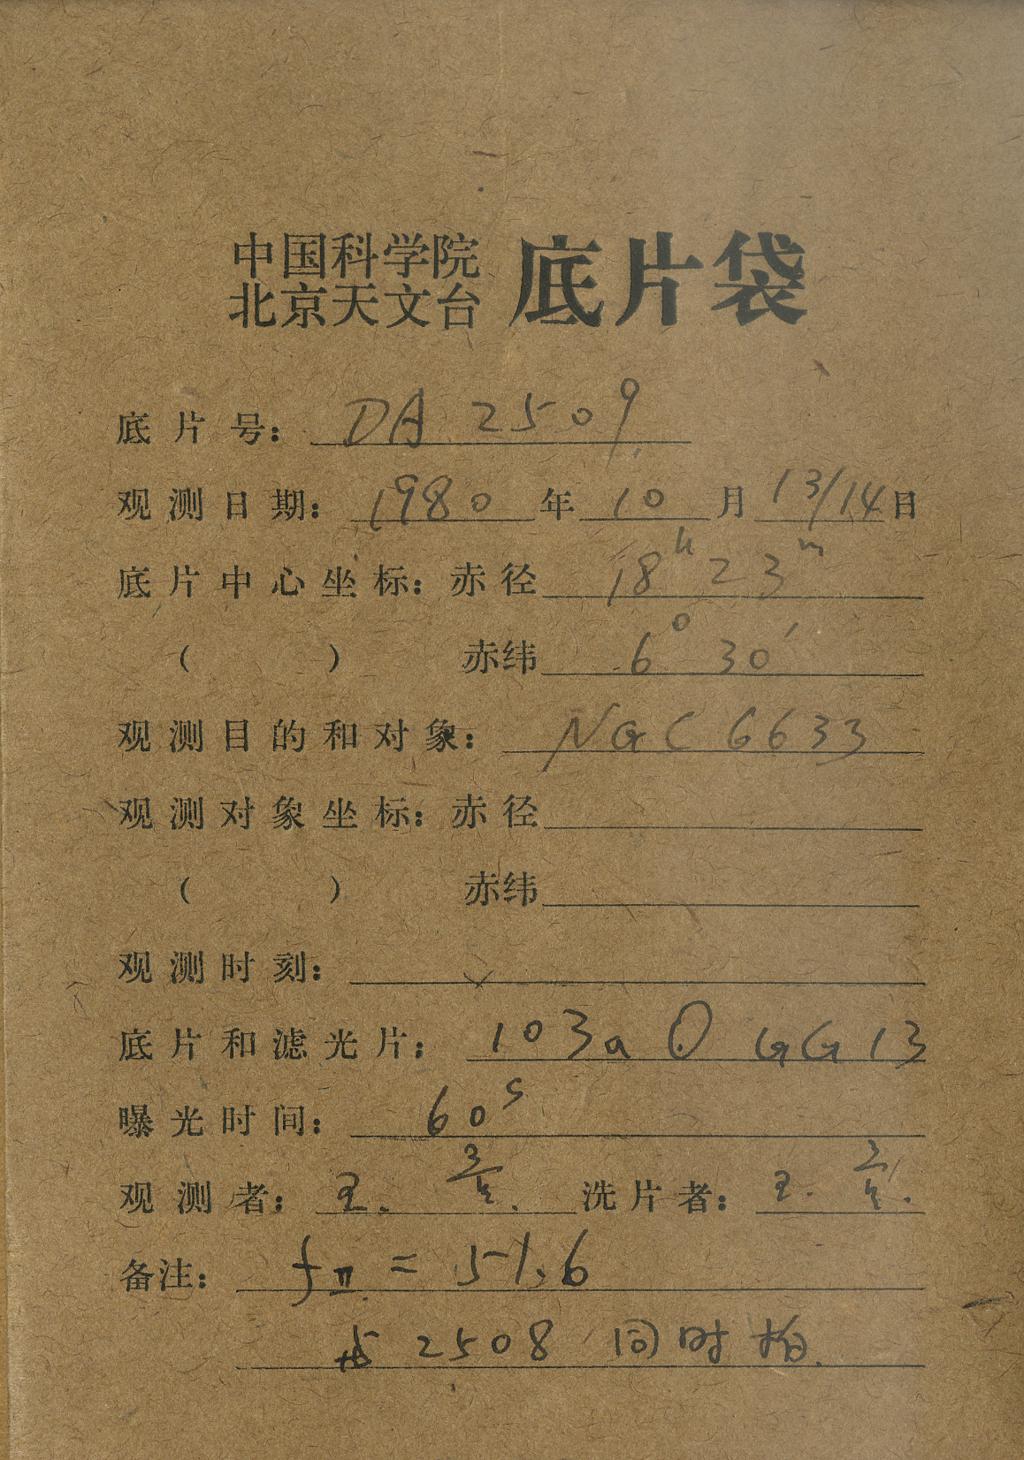 中国科学院
北京天文台
底片袋
底片号: DA 2509
观测日期: 1980 年 10 月 13/14 日
底片中心坐标: 赤径 18h 23m
( ) 赤纬 6° 30′
观测目的和对象: NGC 6633
观测对象坐标: 赤径
( ) 赤纬
观测时刻:
底片和滤光片: 103a O GG 13
曝光时间: 60s
观测者: 王. 洗片者: 王.
备注: fII = 51.6
与 2508 同时拍.